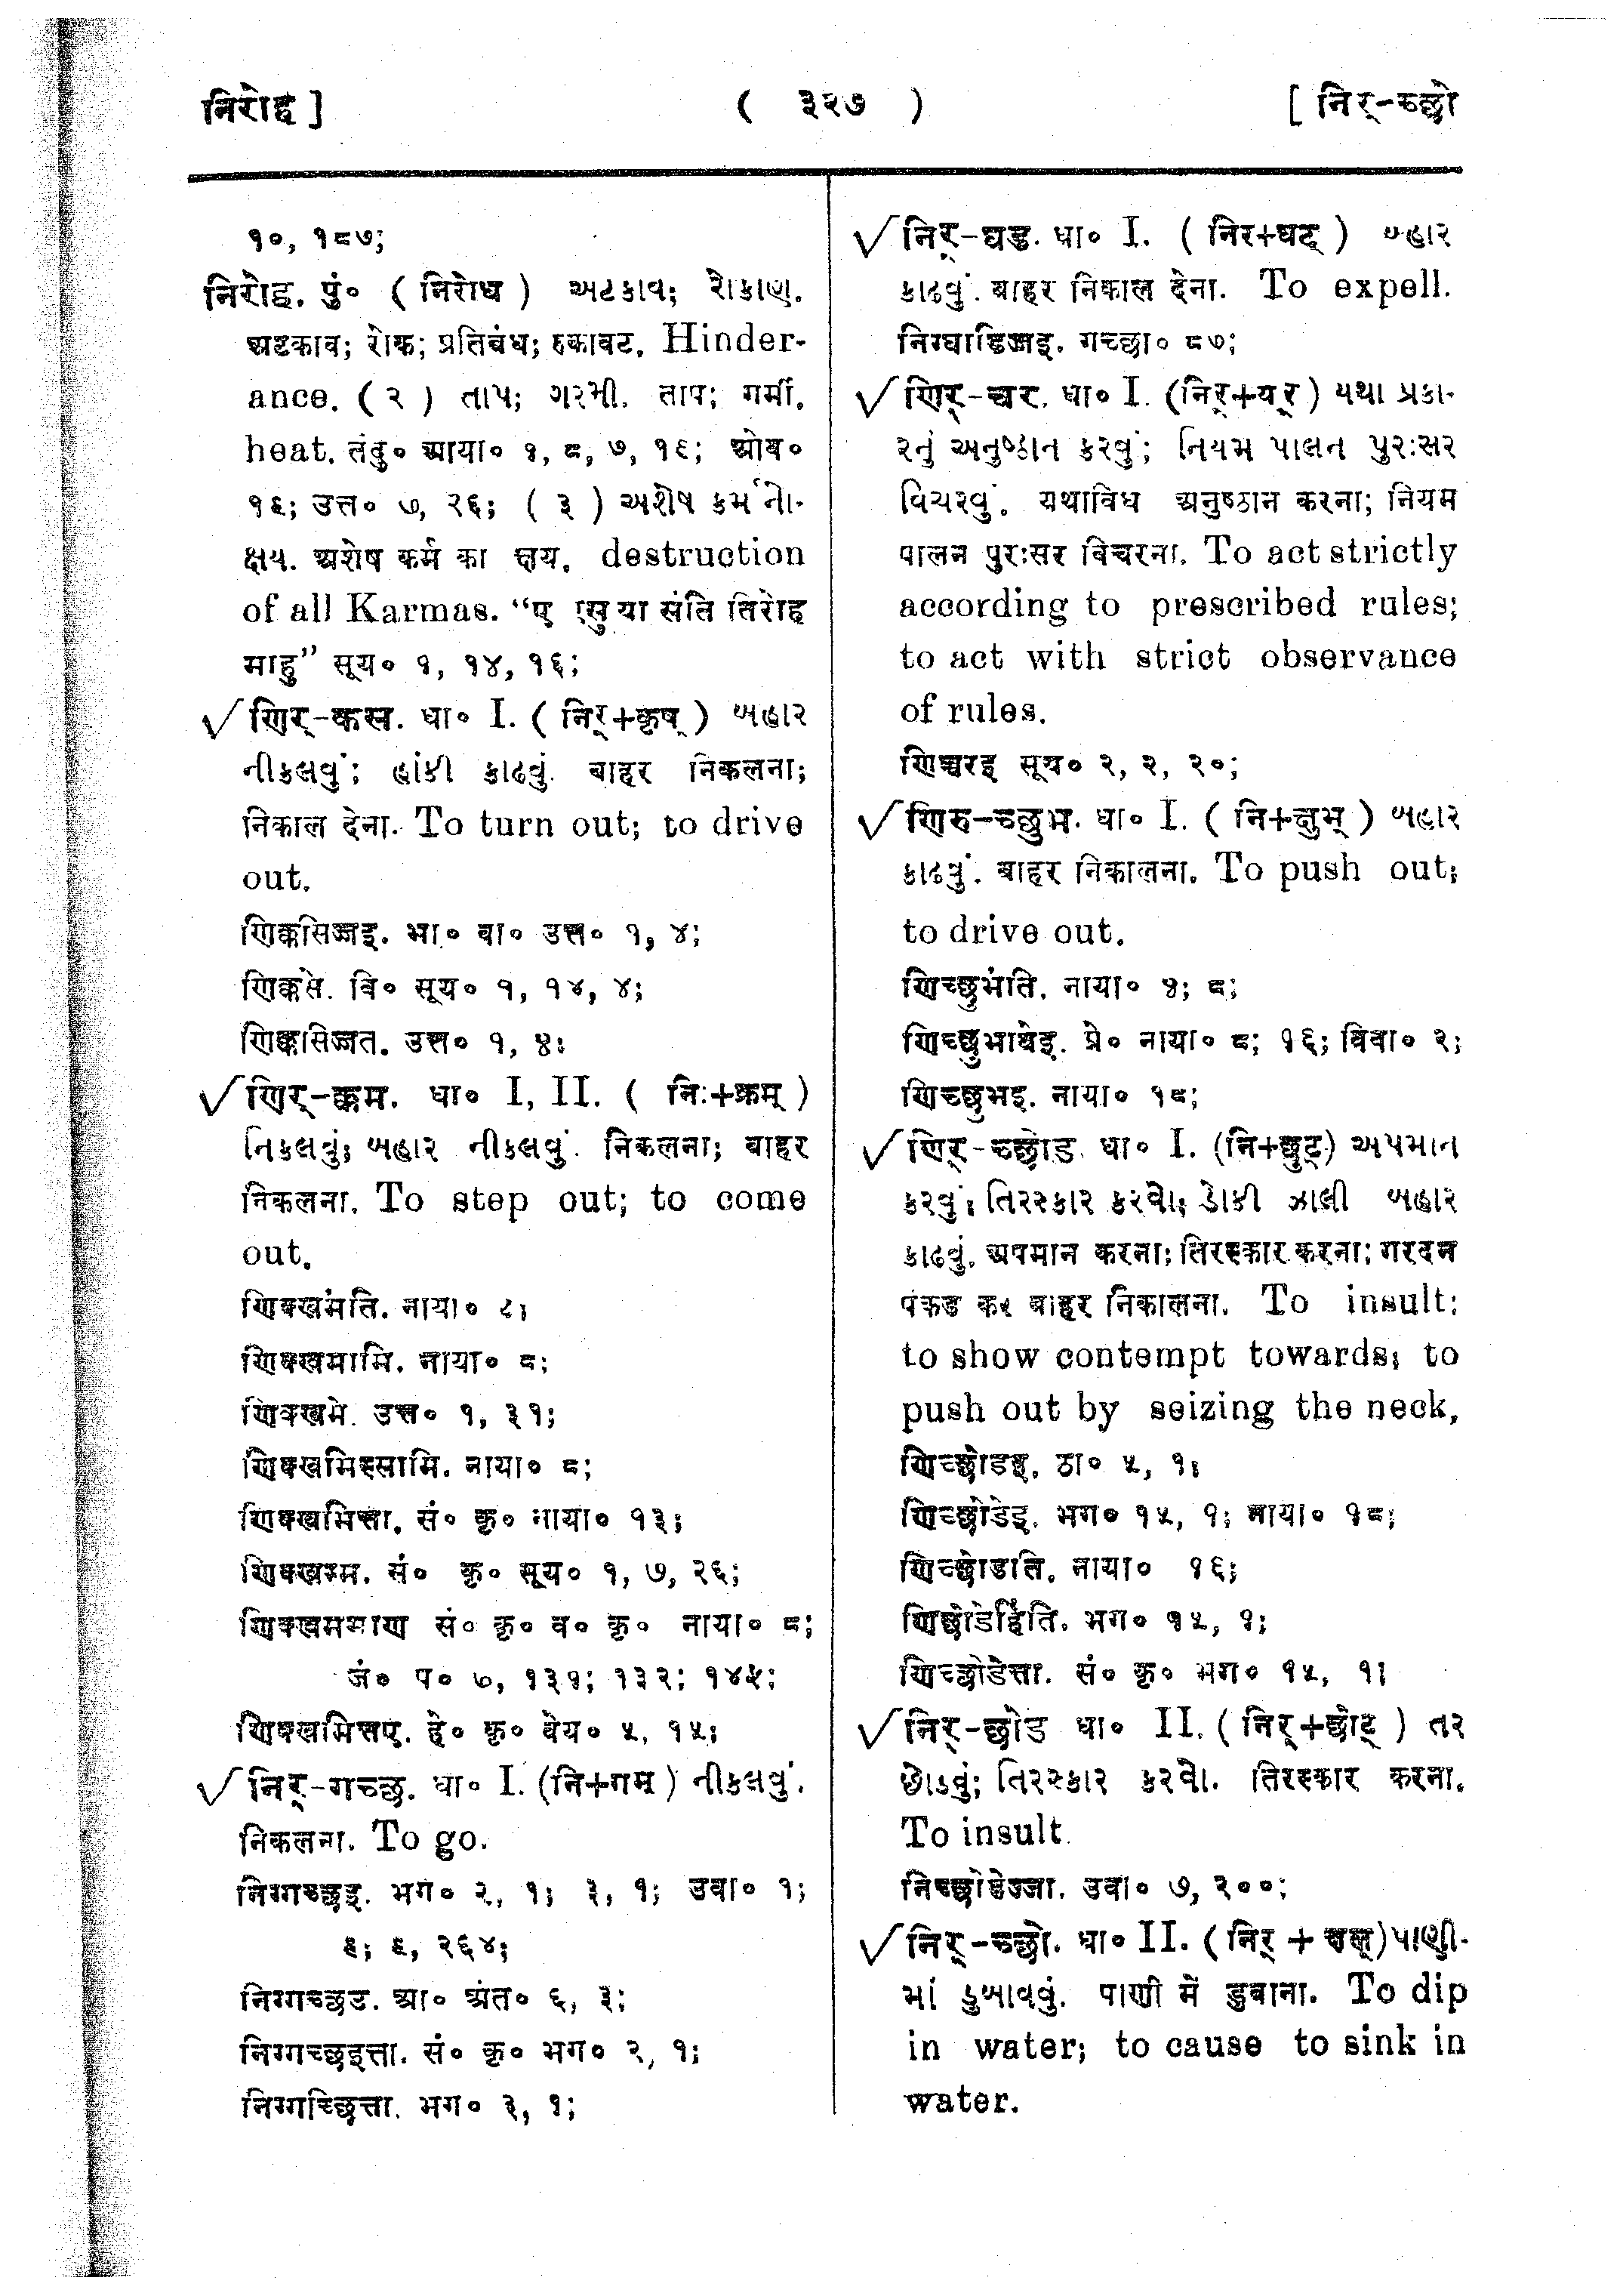 निरोह ]
( ३२७ )
[ निर्-च्छो
१०, १८७;
निरोह. पुं० ( निरोध ) અટકાવ; રોકાણ.
अटकाव; रोक; प्रतिबंध; रुकावट. Hinder-
ance. ( २ ) તાપ; ગરમી. ताप; गर्मी.
heat. तंदु० आया० १, ८, ७, १६; ओव०
१६; उत्त० ७, २६; ( ३ ) અશેષ કર્મનો-
क्षय. अशेष कर्म का क्षय. destruction
of all Karmas. “ए सुया संति तिरोह
माहु” सूय० १, १४, १६;
√ णिर्-कस. धा० I. ( निर्+कृष् ) બહાર
નીકલવું; હાંકી કાઢવું. बाहर निकलना;
निकाल देना. To turn out; to drive
out.
णिक्कसिज्जइ. भा० वा० उत्त० १, ४;
णिक्कसे. वि० सूय० १, १४, ४;
णिक्कसिज्जत. उत्त० १, ४;
√ णिर्-क्कम. धा० I, II. ( निः+क्रम् )
નિકલવું; બહાર નીકલવું. निकलना; बाहर
निकलना. To step out; to come
out.
णिक्खमंति. नाया० ८;
णिक्खमामि. नाया० ८;
णिक्खमे. उत्त० १, ३१;
णिक्खमिस्सामि. नाया० ८;
णिक्खमित्ता. सं० कृ० नाया० १३;
णिक्खम्म. सं० कृ० सूय० १, ७, २६;
णिक्खममाण सं० कृ० व० कृ० नाया० ८;
जं० प० ७, १३१; १३२; १४५;
णिक्खमित्तए. हे० कृ० वेय० ५, १५;
√ निर्-गच्छ. धा० I. (नि+गम्) નીકલવું.
निकलना. To go.
निग्गच्छइ. भग० २, १; ३, १; उवा० १;
६; ६, २६४;
निग्गच्छउ. आ० अंत० ६, ३;
निग्गच्छइत्ता. सं० कृ० भग० २, १;
निग्गच्छित्ता. भग० ३, १;
√ निर्-घड. धा० I. ( निर+घट् ) બહાર
કાઢવું. बाहर निकाल देना. To expell.
निग्घाडिज्जइ. गच्छा० ८७;
√ णिर्-चर. धा० I. (निर्+चर्) યથા પ્રકા-
રનું અનુષ્ઠાન કરવું; નિયમ પાલન પુરઃસર
વિચરવું. यथाविध अनुष्ठान करना; नियम
पालन पुरःसर विचरना. To act strictly
according to prescribed rules;
to act with strict observance
of rules.
णिच्चरइ सूय० २, २, २०;
√ णिरु-च्छुभ. धा० I. ( नि+क्षुभ् ) બહાર
કાઢવું. बाहर निकालना. To push out;
to drive out.
णिच्छुभंति. नाया० ४; ८;
णिच्छुभावेइ. प्रे० नाया० ८; १६; विवा० २;
णिच्छुभइ. नाया० १८;
√ णिर्-च्छोड. धा० I. (नि+छुट्) અપમાન
કરવું; તિરસ્કાર કરવો; ડોકી ઝાલી બહાર
કાઢવું. अपमान करना; तिरस्कार करना; गरदन
पकड कर बाहर निकालना. To insult;
to show contempt towards; to
push out by seizing the neck,
णिच्छोडइ. ठा० ५, १;
णिच्छोडेइ. भग० १५, १; नाया० १८;
णिच्छोडति. नाया० १६;
णिछोडेहिंति. भग० १५, १;
णिच्छोडेत्ता. सं० कृ० भग० १५, १;
√ निर्-छोड धा० II. ( निर्+छोट् ) તર
છોડવું; તિરસ્કાર કરવો. तिरस्कार करना.
To insult.
निच्छोडेज्जा. उवा० ७, २००;
√ निर्-च्छो. धा० II. ( निर् + चल्) પાણી-
માં ડુબાવવું. पाणी में डुबाना. To dip
in water; to cause to sink in
water.